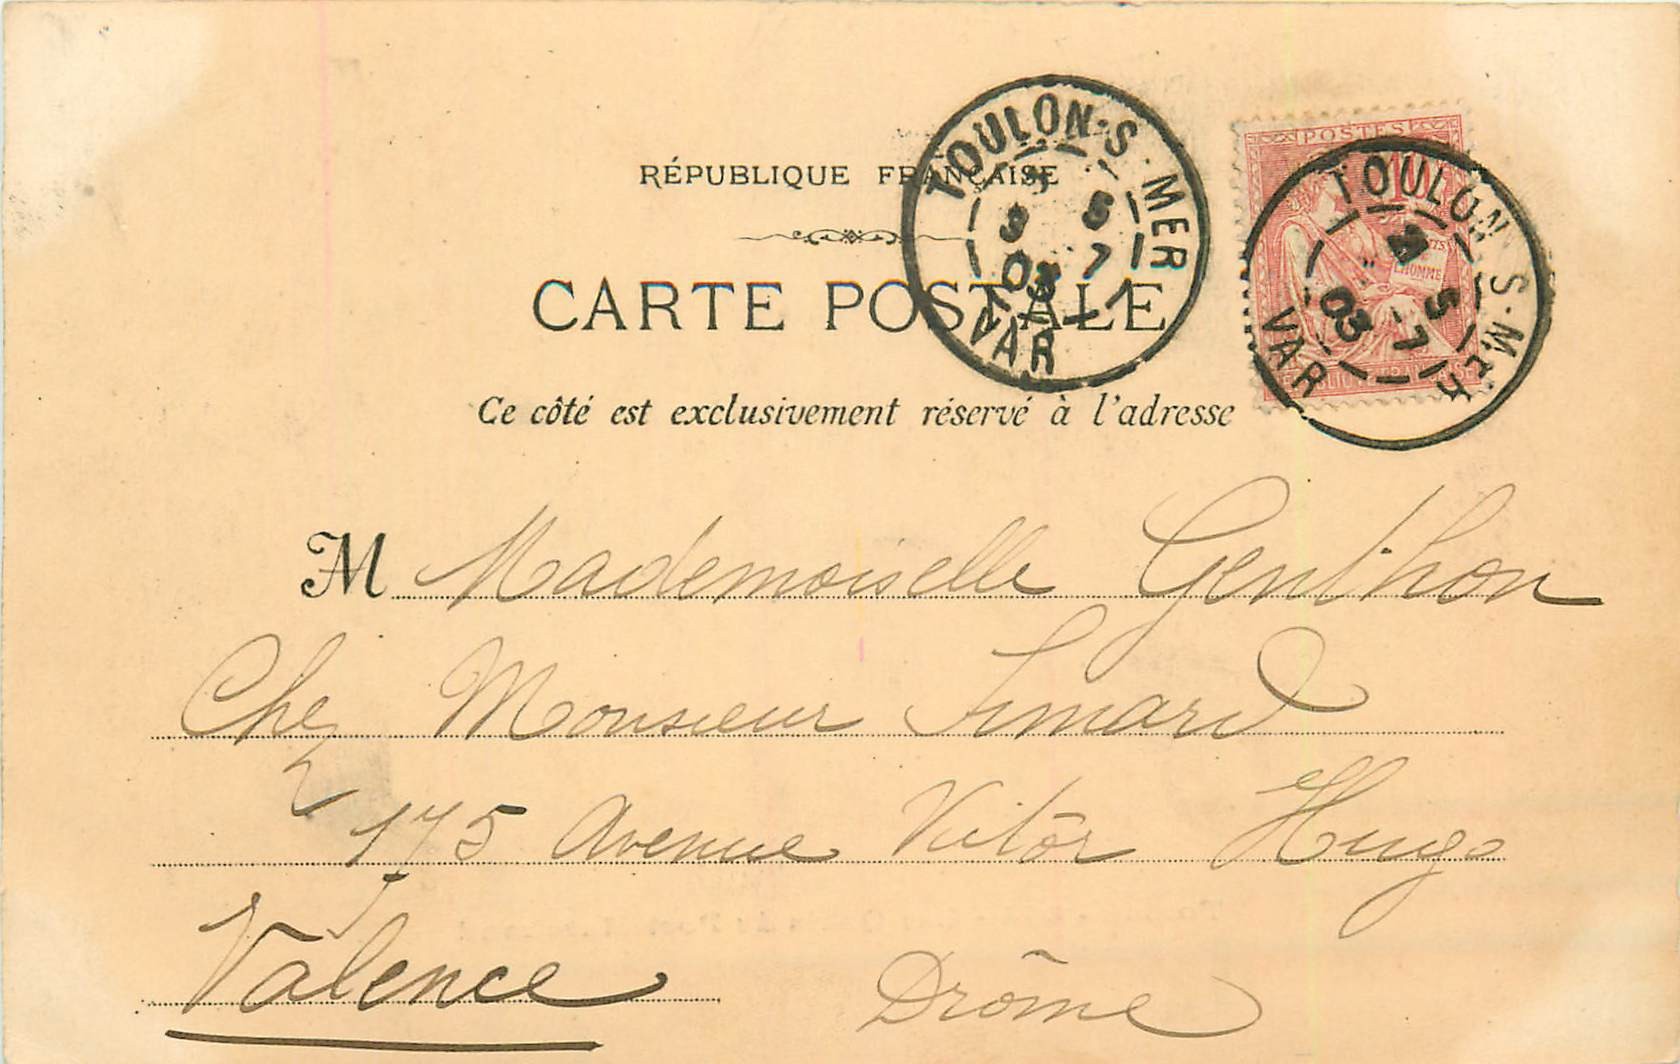 RÉPUBLIQUE FRANÇAISE
CARTE POSTALE
Ce côté est exclusivement réservé à l'adresse
TOULON-S-MER
5 -7
03
VAR
POSTES
10
L'HOMME
TOULON-S-MER
5 -7
03
VAR
M Mademoiselle Genthon
Chez Monsieur Simard
175 Avenue Victor Hugo
Valence Drôme